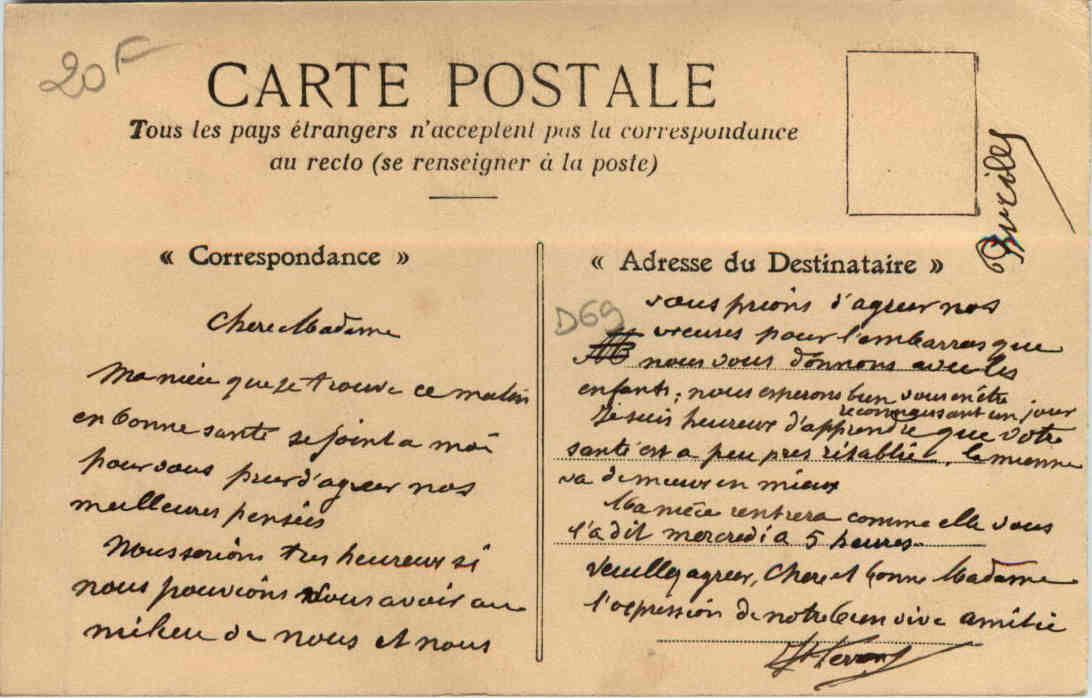 20F
CARTE POSTALE
Tous les pays étrangers n'acceptent pas la correspondance
au recto (se renseigner à la poste)
« Correspondance »
Chere Madame
Ma niece que je trouve ce matin
en bonne santé se joint a moi
pour vous prier d'agreer nos
meilleures pensées
Nous serions tres heureux si
nous pouvions vous avoir au
milieu de nous et nous
« Adresse du Destinataire »
D69
vous prions d'agreer nos
pour l'embarras que
nous vous donnons avec les
enfants; nous esperons bien vous en être
reconnaissant un jour
Je suis heureux d'apprendre que votre
santé est a peu pres rétablie, la mienne
va de mieux en mieux
Ma niéce rentrera comme elle vous
l'a dit mercredi a 5 heures.
Veuillez agreer, Chere et bonne Madame
l'expression de notre bien vive amitié